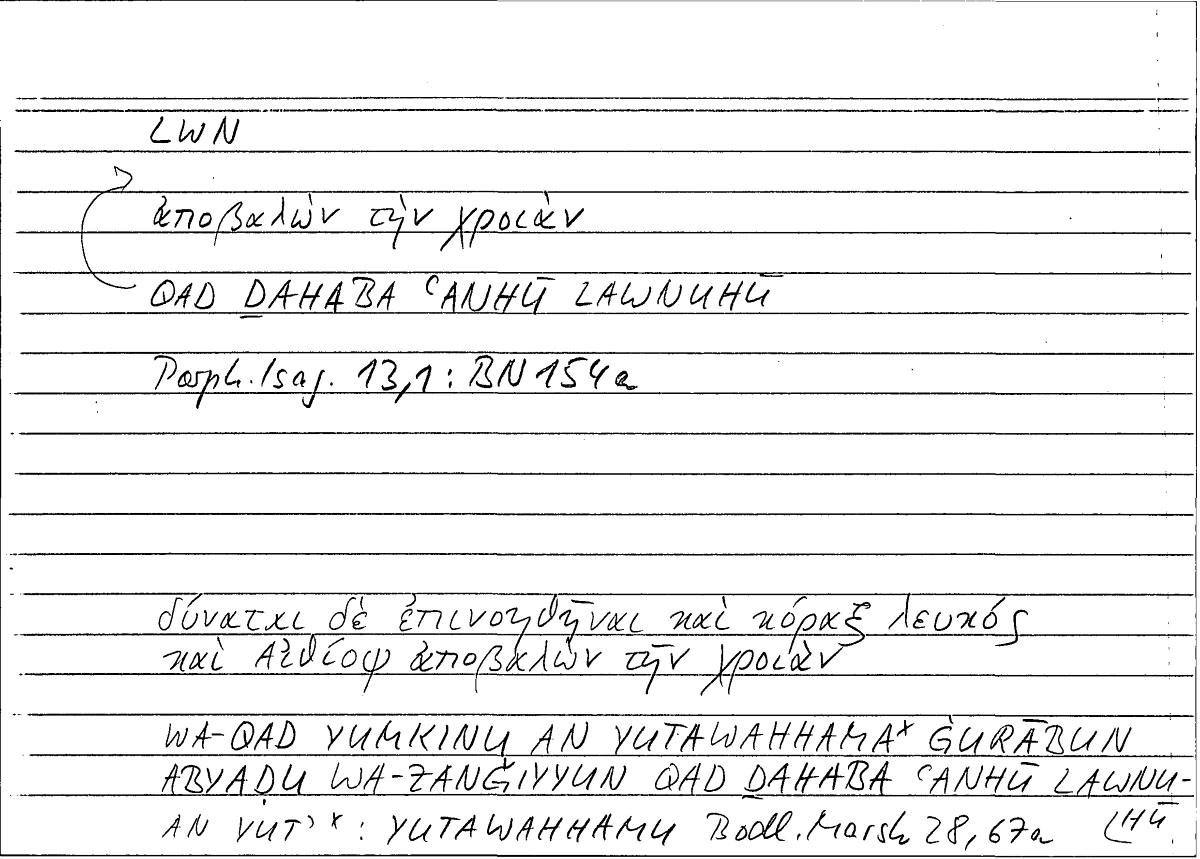 LWN
ἀποβαλὼν τὴν χροιὰν
QAD ḎAHABA ʿANHŪ LAWNUHŪ
Porph. Isag. 13,1: BN 154a
δύναται δὲ ἐπινοηθῆναι καὶ κόραξ λευκός
καὶ Αἰθίοψ ἀποβαλὼν τὴν χροιὰν
WA-QAD YUMKINU AN YUTAWAHHAMAˣ ĠURĀBUN
ABYAḌU WA-ZANǦIYYUN QAD ḎAHABA ʿANHŪ LAWNU-
HŪ
AN YUT' ˣ: YUTAWAHHAMU Bodl. Marsh 28, 67a